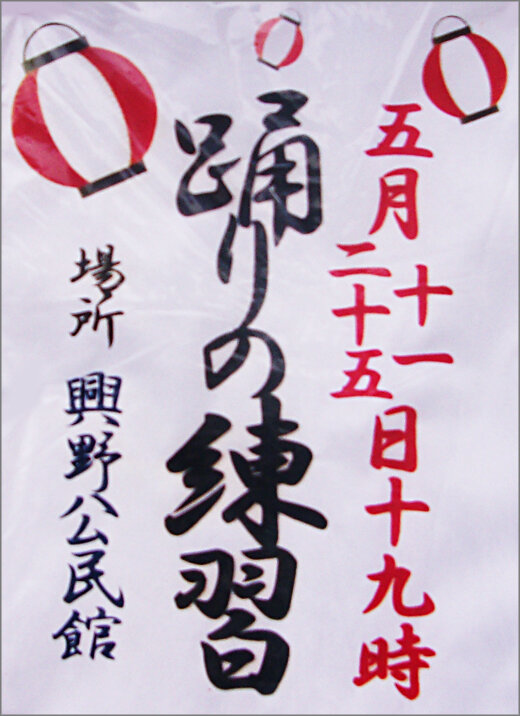 五月
十一
二十五
日十九時
踊りの練習
場所 興野公民館